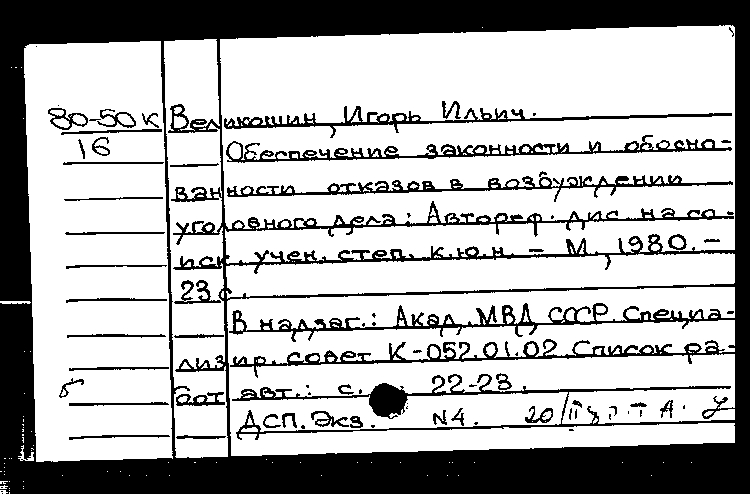 80-50к Великошин, Игорь Ильич.
16 Обеспечение законности и обосно-
ванности отказов в возбуждении
уголовного дела: Автореф. дис. на со-
иск. учен. степ. к.ю.н. - М., 1980. -
23 с.
В надзаг.: Акад. МВД СССР. Специа-
лизир. совет К-052.01.02. Список ра-
бот авт.: с. 22-23.
ДСП. Экз. N4. 20/III